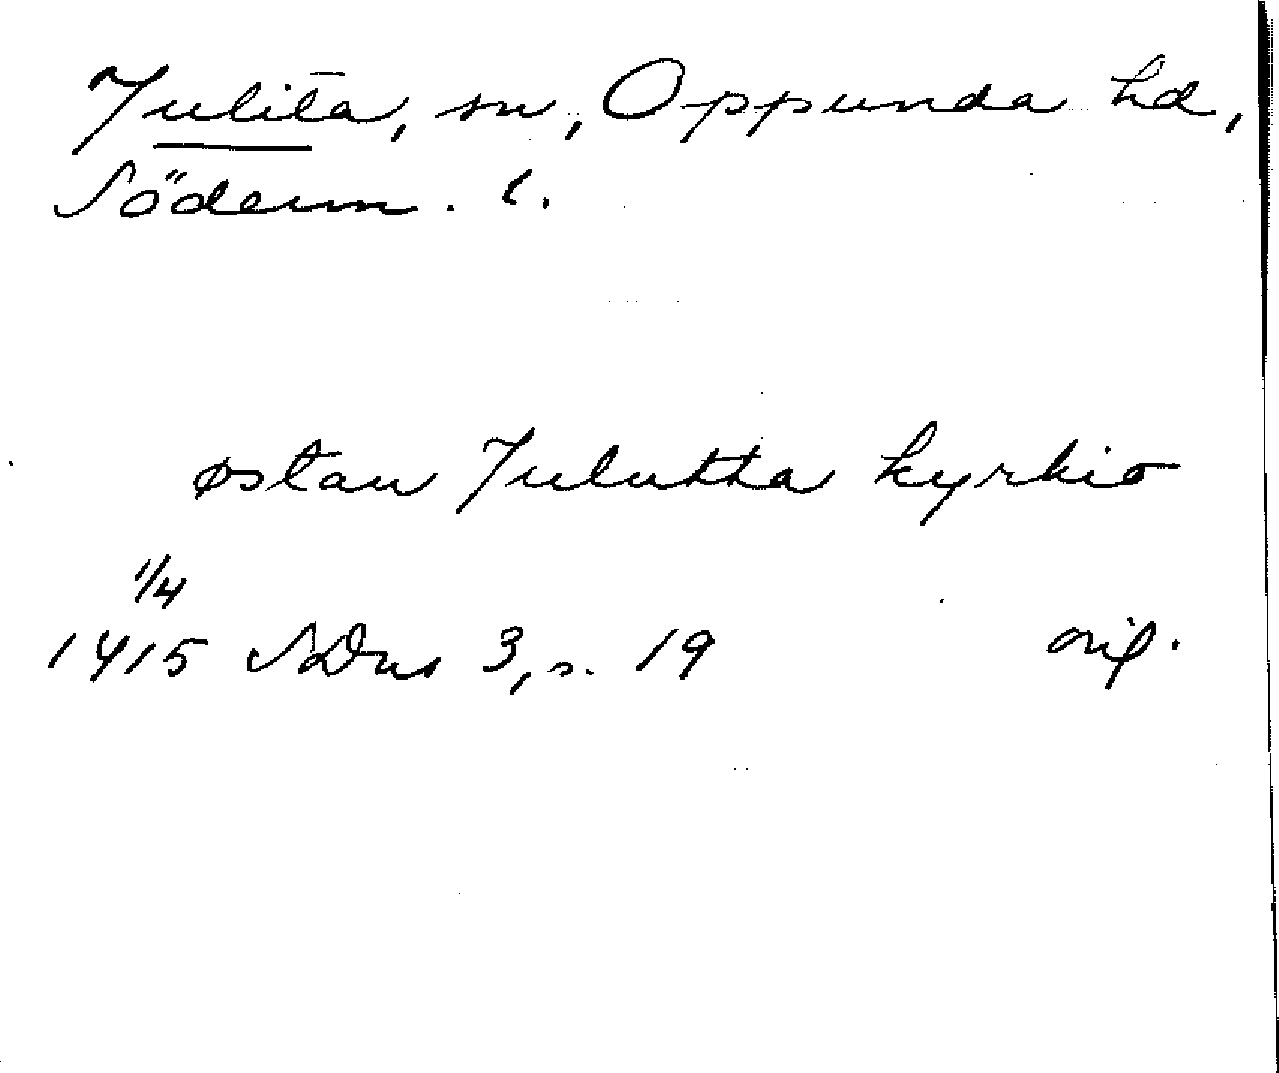 Julita, sn, Oppunda hd,
Söderm. l.
østan Julutta kyrkio
1/4
1415 SDns 3, s. 19 orig.